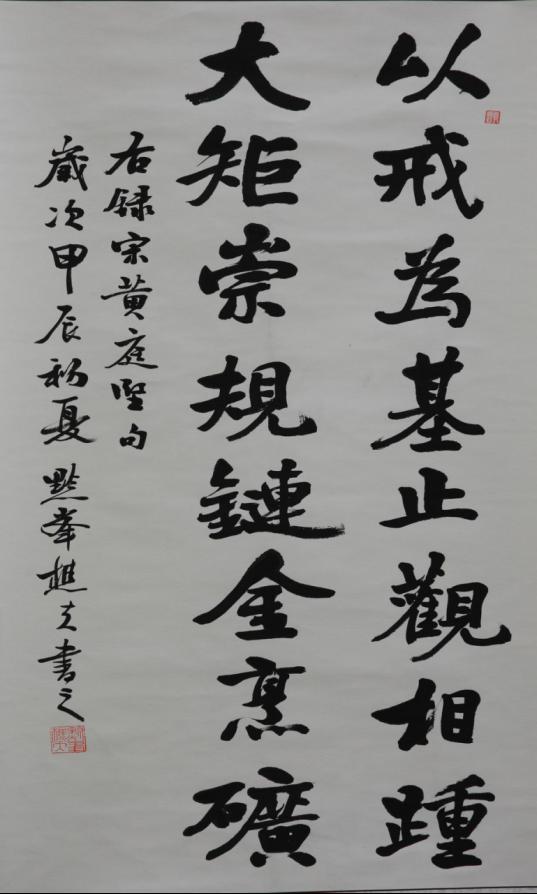 以戒為基止觀相踵
大矩崇規鏈金烹礦
右録宋黄庭堅句
歲次甲辰初夏點峯樵夫書之